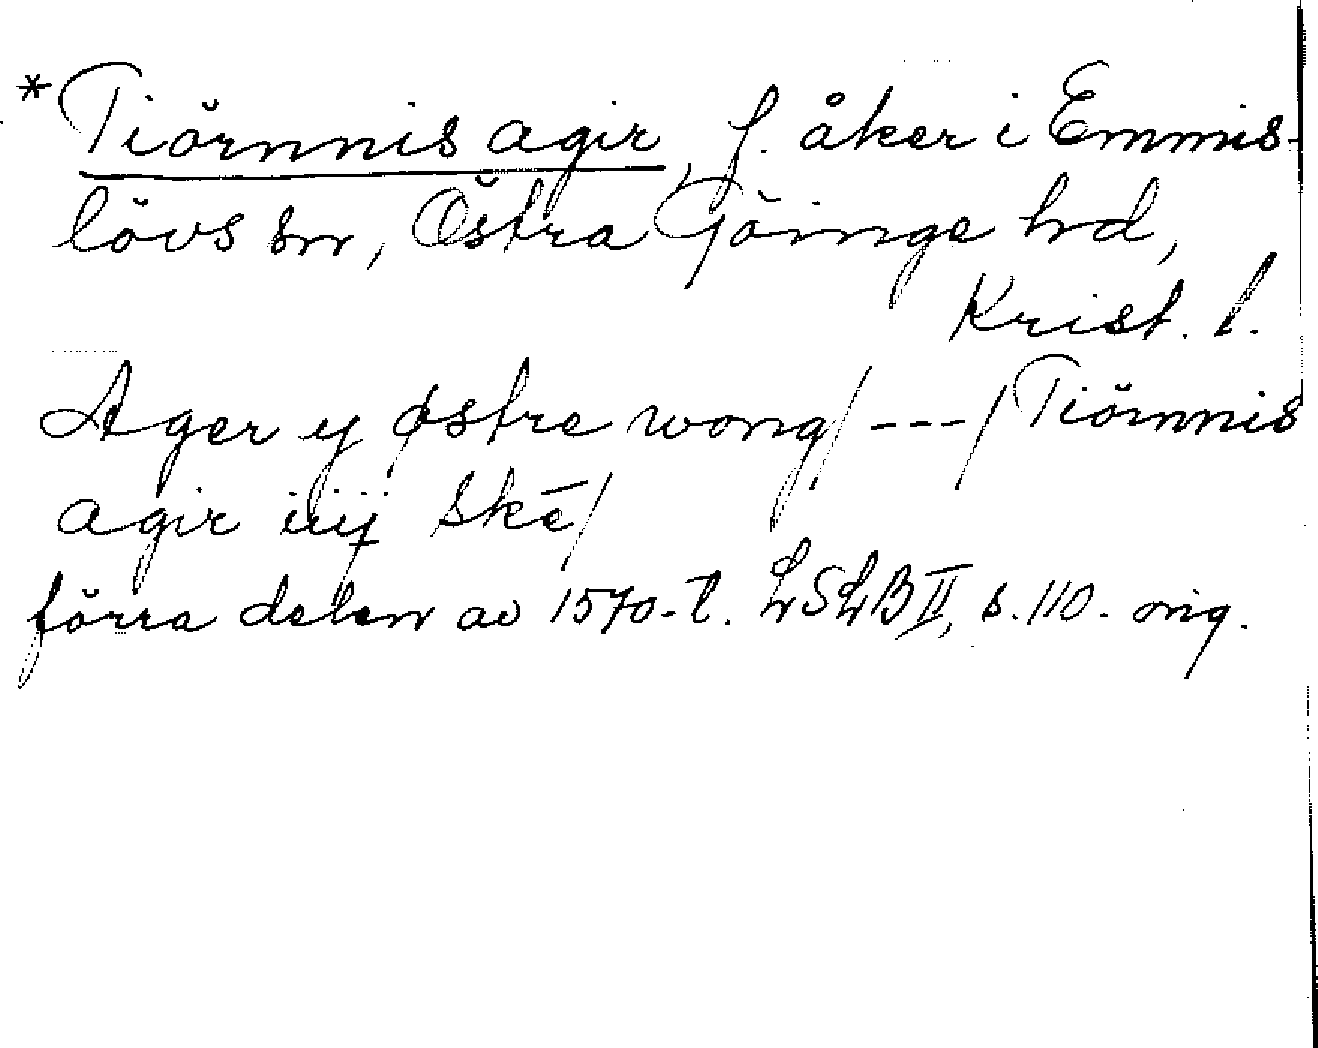 *Tiörnnis agir, f. åker i Emmis-
lövs sn, Östra Göinge hd,
Krist. l.
Ager y østre wong/---/Tiörnnis
agir iiij skē/
förra delen av 1570-t. LSLB II, s. 110. orig.